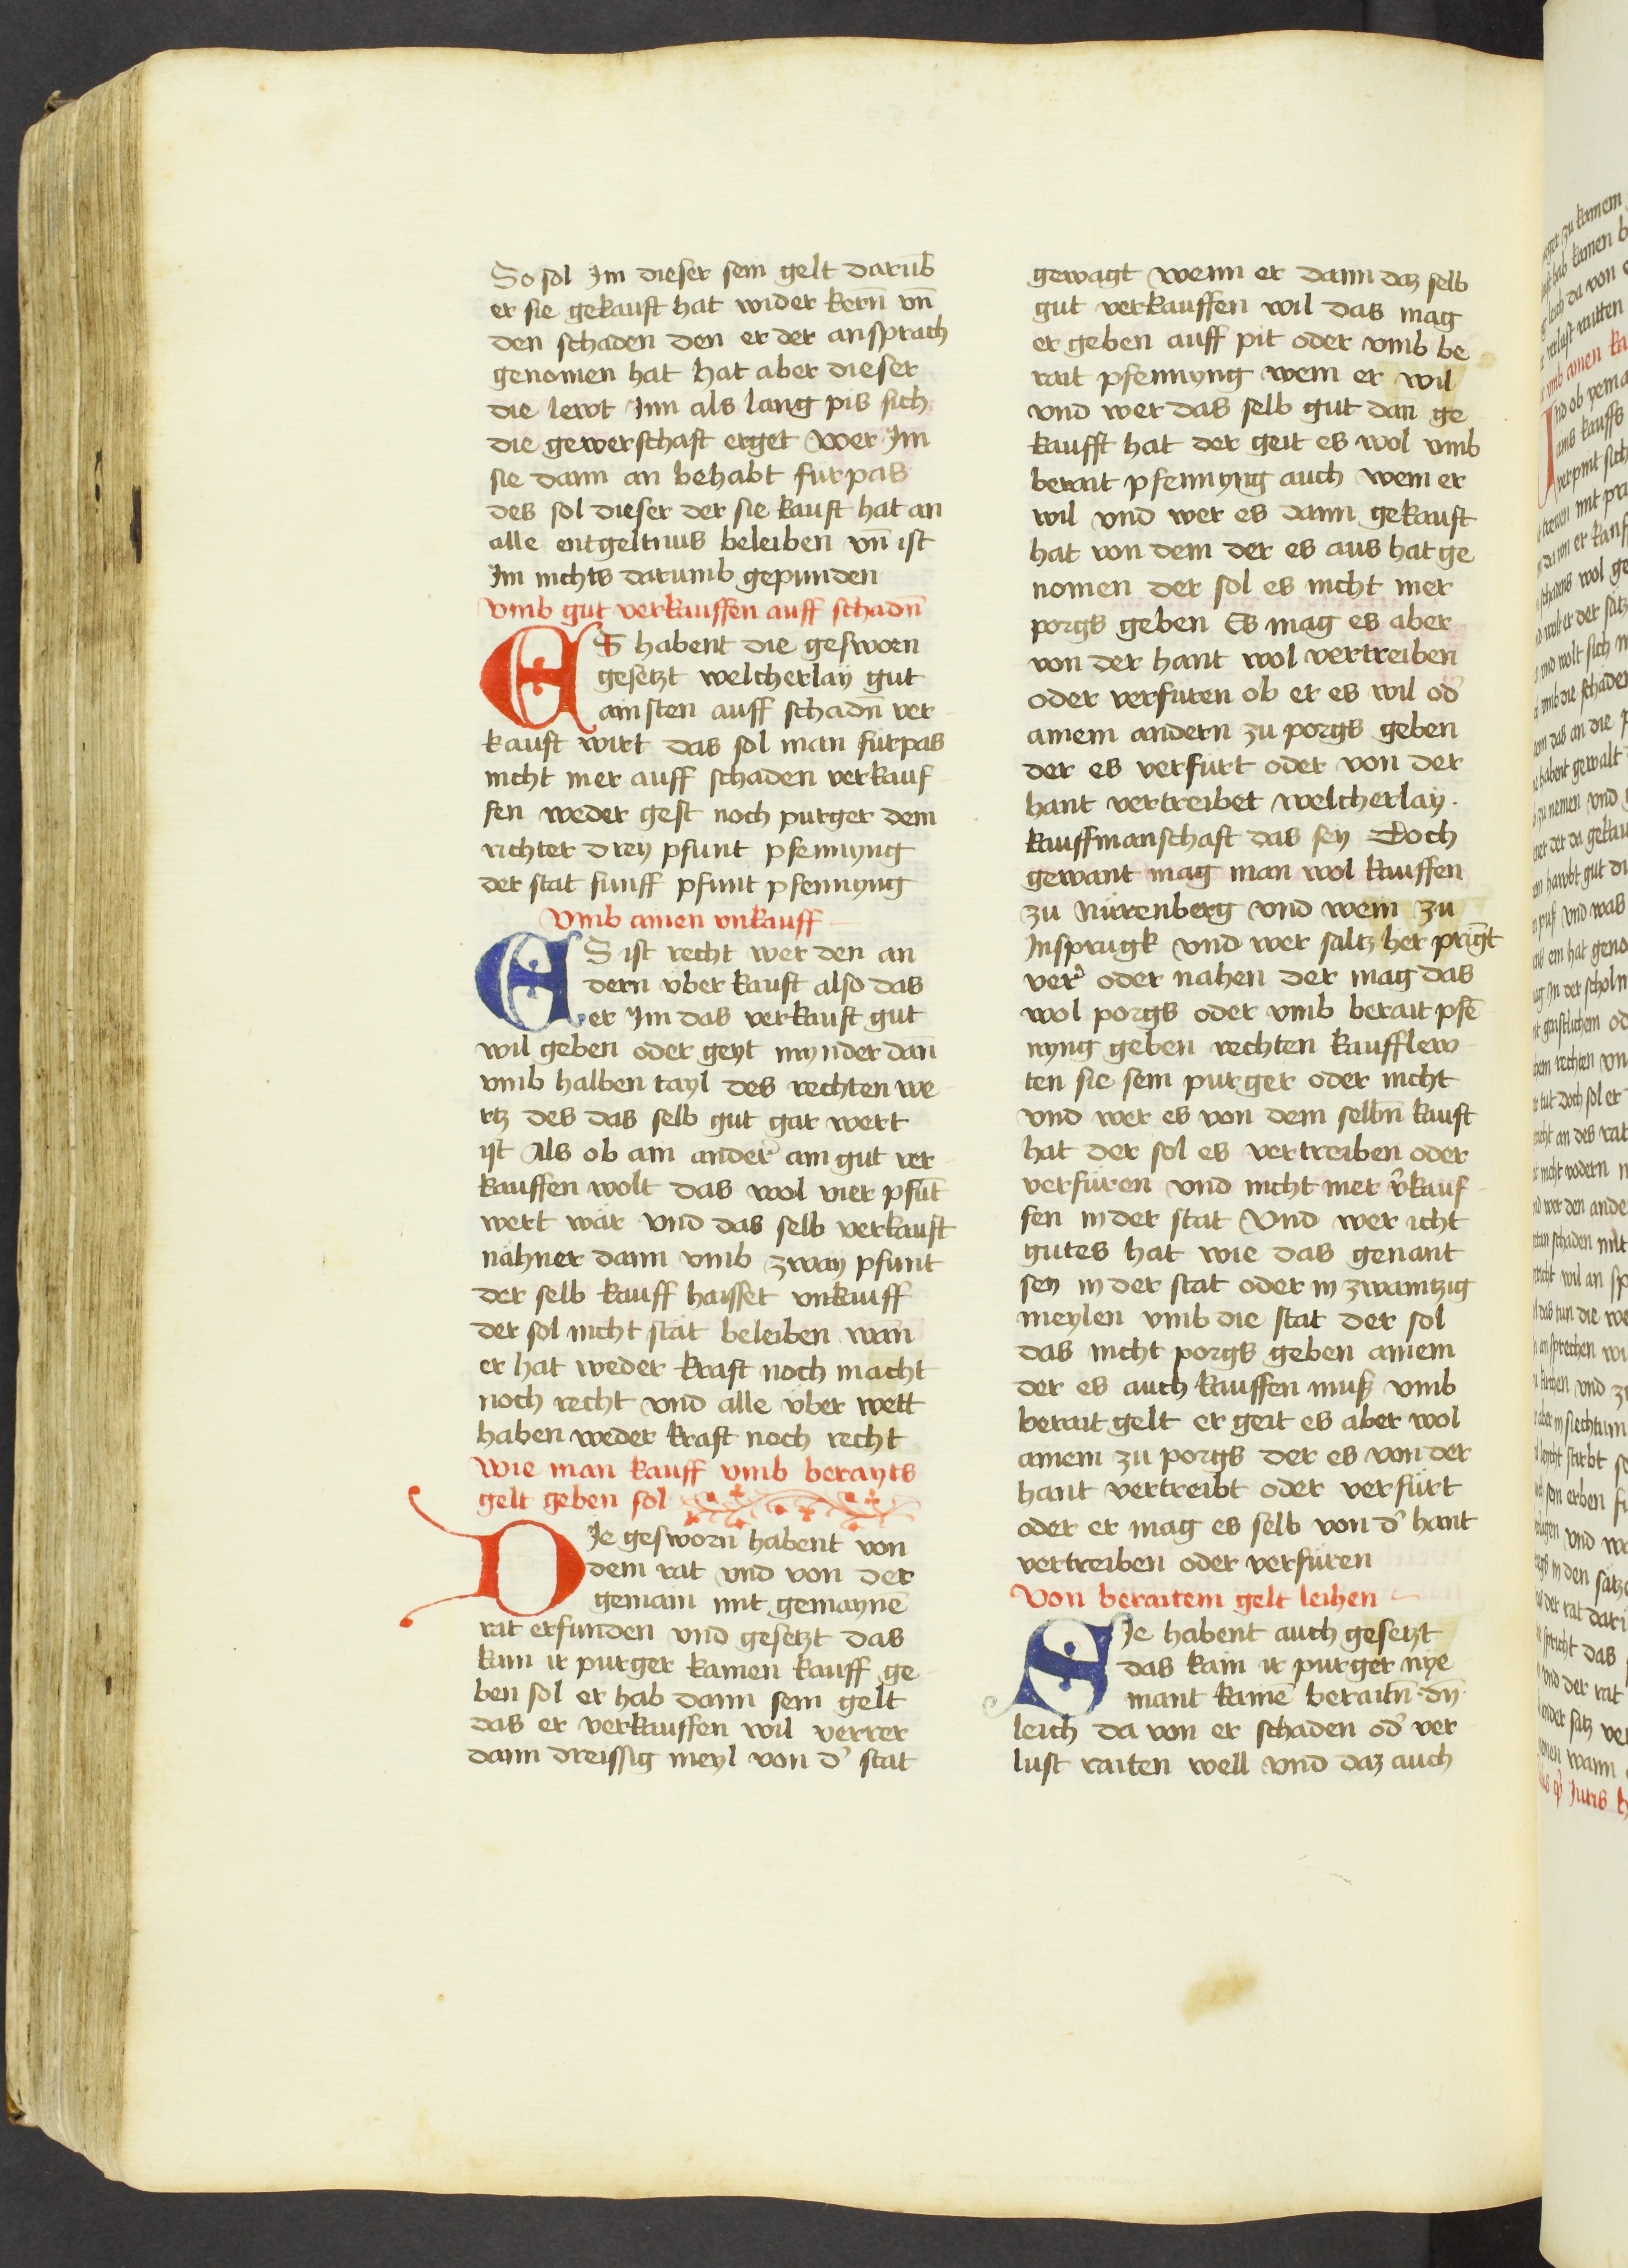 So sol Im dieser sein gelt darūb
er sie gekauft hat wider kern̄ vn̄
den schaden den er der ansprach
genomen hat hat aber dieser
die lewt Inn als lang pis sich
die gewerschaft erget wer Im
sie dann an behabt furpas
des sol dieser der sie kauft hat an
alle entgeltnus beleiben vn̄ ist
Im nichts darumb gepunden
Vmb gut verkauffen auff schadn̄
ES habent die gesworn
gesetzt welcherlay gut
ainsten auff schadn̄ ver
kauft wirt das sol man fürpas
nicht mer auff schaden verkauf
fen weder gest noch purger dem
richter drey pfunt pfennyng
der stat funff pfunt pfennyng
Vmb ainen vnkauff
ES ist recht wer den an
dern vber kauft also das
er Im das verkauft gut
wil geben oder geyt mynder dan̄
vmb halben tayl des rechten we
rtz des das selb gut gar wert
ist Als ob ain ander ain gut ver
kauffen wolt das wol vier pfūt
wert wär vnd das selb verkauft
nähner dann vmb zway pfunt
der selb kauff haisset vnkauff
der sol nicht stät beleiben wan̄
er hat weder kraft noch macht
noch recht vnd alle vber wett
haben weder kraft noch recht
Wie man kauff vmb berayts
gelt geben sol
DIe gesworn habent von
dem rat vnd von der
gemain mit gemaynē
rat erfunden vnd gesetzt das
kain ir purger kainen kauff ge
ben sol er hab dann sein gelt
das er verkauffen wil verrer
dann dreissig meyl von d' stat
gewagt wenn er dann daz selb
gut verkauffen wil das mag
er geben auff pit oder vmb be
rait pfennyng wem er wil
vnd wer das selb gut dan̄ ge
kaufft hat der geit es wol vmb
berait pfennyng auch wem er
wil vnd wer es dann gekauft
hat von dem der es aus hat ge
nomen der sol es nicht mer
porgs geben Es mag es aber
von der hant wol vertreiben
oder verfüren ob er es wil od'
ainem andern zu porgs geben
der es verfurt oder von der
hant vertreibet welcherlay
kauffmanschaft das sey Doch
gewant mag man wol kauffen
zu Nürenberg vnd wein zu
Insprugk vnd wer saltz her prīgt
ver' oder nahen der mag das
wol porgs oder vmb berait pfē
nyng geben rechten kaufflew
ten sie sein purger oder nicht
vnd wer es von dem selbn̄ kauft
hat der sol es vertreiben oder
verfüren vnd nicht mer v'kauf
fen in der stat Vnd wer icht
gutes hat wie das genant
sey in der stat oder in zwaintzig
meylen vmb die stat der sol
das nicht porgs geben ainem
der es auch kauffen muß vmb
berait gelt er geit es aber wol
ainem zu porgs der es von der
hant vertreibt oder verfürt
oder er mag es selb von d' hant
vertreiben oder verfüren
Von beraitem gelt leihen
SIe habent auch gesetzt
das kain ir purger nye
mant kainē beraitn̄ dn̄
leich da von er schaden od' ver
lust raiten well vnd daz auch